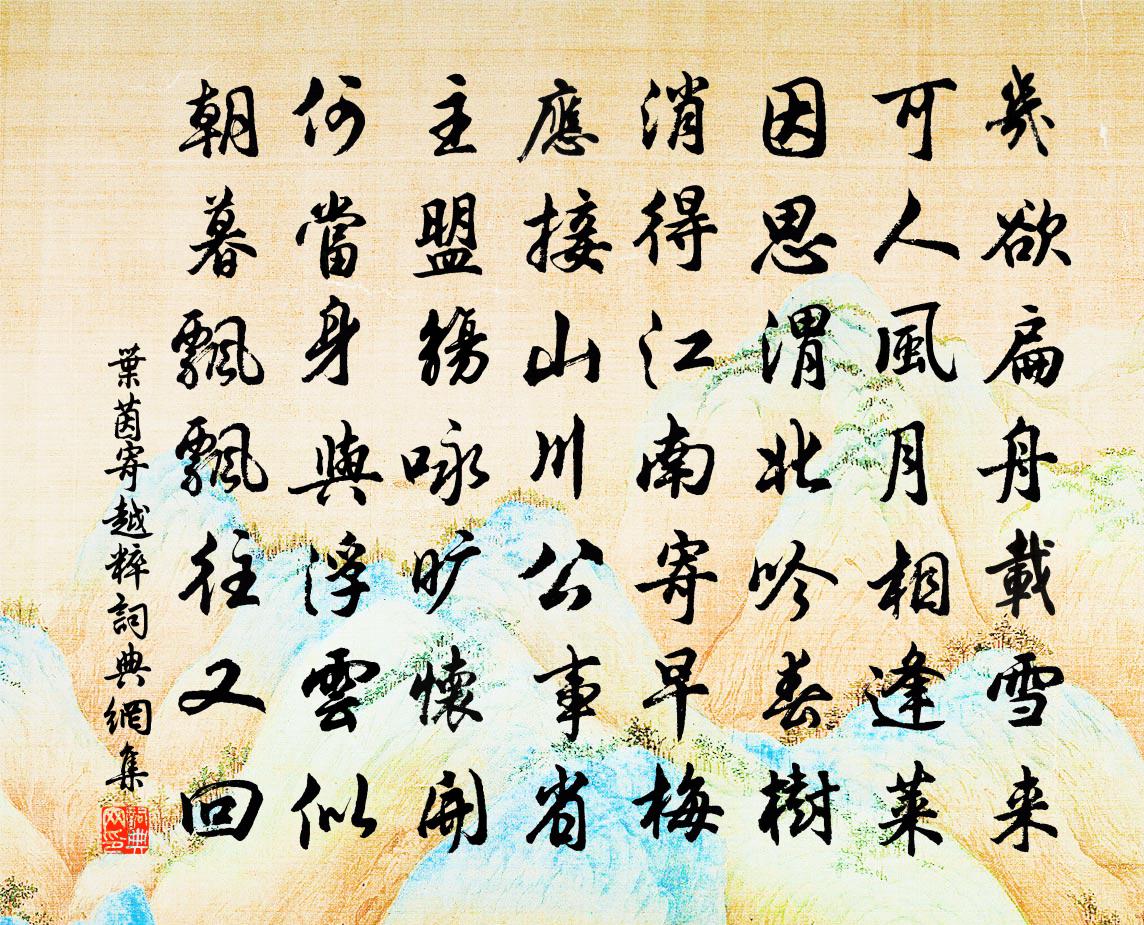 幾欲扁舟載雪来
可人風月相逢萊
因思渭北吟春樹
消得江南寄早梅
應接山川公事省
主盟觴咏曠懷開
何當身與浮雲似
朝暮飄飄往又回
葉茵寄越粹詞典網集
詞典